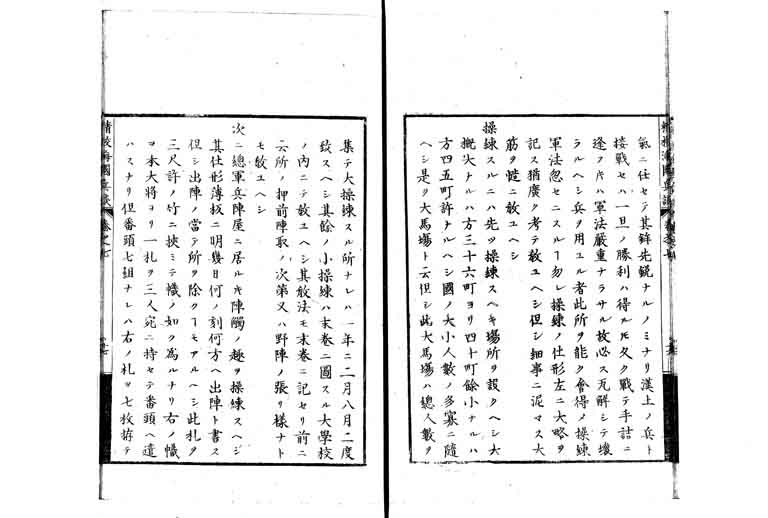 氣ニ任セテ其鋒先鋭ナルノミナリ漢土ノ兵ト
接戰セハ一旦ノ勝利ハ得ルモ久ク戰テ手詰ニ
逢フキハ軍法嚴重ナラサル故必ス瓦解シテ壞
ラルヘシ兵ヲ用ユル者此所ヲ能ク會得ノ操練
軍法忽セニスルヿ勿レ操練ノ仕形左ニ大略ヲ
記ス猶廣ク考テ教ユヘシ但シ細事ニ泥マス大
筋ヲ健ニ教ユヘシ
操練スルニハ先ツ操練スヘキ場所ヲ設クヘシ大
概大ナルハ方三十六町ヨリ四十町餘小ナルハ
方四五町許ナルヘシ國ノ大小人數ノ多寡ニ隨
ヘシ是ヲ大馬場ト云但シ此大馬場ハ總人數ヲ
集テ大操練スル所ナレハ一年ニ二月八月二度
致スヘシ其餘ノ小操練ハ末卷ニ圖スル大學校
ノ内ニテ教ユヘシ其敎法モ末卷ニ記セリ前ニ
云所ノ押前陣取ノ次第又ハ野陣ノ張リ樣ナト
モ敎ユヘシ
次ニ總軍兵陣屋ニ居ルキ陣觸ノ趣ヲ操練スヘシ
其仕形薄板ニ明幾日何ノ刻何方ヘ出陣ト書ス
但シ出陣ノ當テ所ヲ除クヿモアルヘシ此札ヲ
三尺許ノ竹ニ挾ミテ幟ノ如ク為ルナリ右ノ幟
ヲ本大將ヨリ一札ヲ三人宛ニ持セテ番頭ヘ遣
ハスナリ但番頭七組ナレハ右ノ札ヲ七枚拵テ
精校海國兵談 卷之七